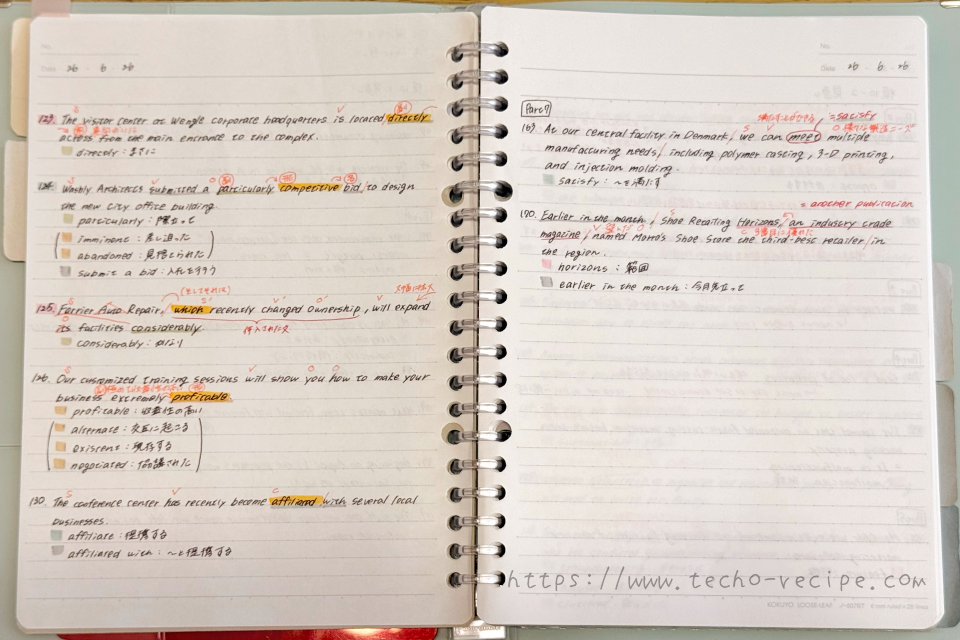 No.
Date 26 . 6 . 26
123. The visitor center at Wengle corporate headquarters is located directly
across from the main entrance to the complex.
directly : まさに
124. Washly Architects submitted a particularly competitive bid / to design
the new city office building.
particularly : 際立って
imminent : 差し迫った
abandoned : 見捨てられた
submit a bid : 入札をする
125. Farrier Auto Repair, which recently changed ownership, will expand
its facilities considerably.
挿入された文
considerably : かなり
126. Our customized training sessions will show you how to make your
business extremely profitable.
profitable : 収益性の高い
alternate : 交互に起こる
existent : 現存する
negotiated : 協議された
130. The conference center has recently become affiliated / with several local
businesses.
affiliate : 提携する
affiliated with : 〜と提携する
No.
Date 26 . 6 . 26
Part7
= satisfy
169. At our central facility in Denmark / we can meet multiple
manufacturing needs / including polymer casting, 3-D printing,
and injection molding.
satisfy : 〜を満たす
= another publication
170. Earlier in the month, Shoe Retailing Horizons, an industry trade
magazine, named Morro's Shoe Store the third-best retailer / in
the region.
horizons : 範囲
earlier in the month : 今月先立って
https://www.techo-recipe.com
KOKUYO LOOSE-LEAF